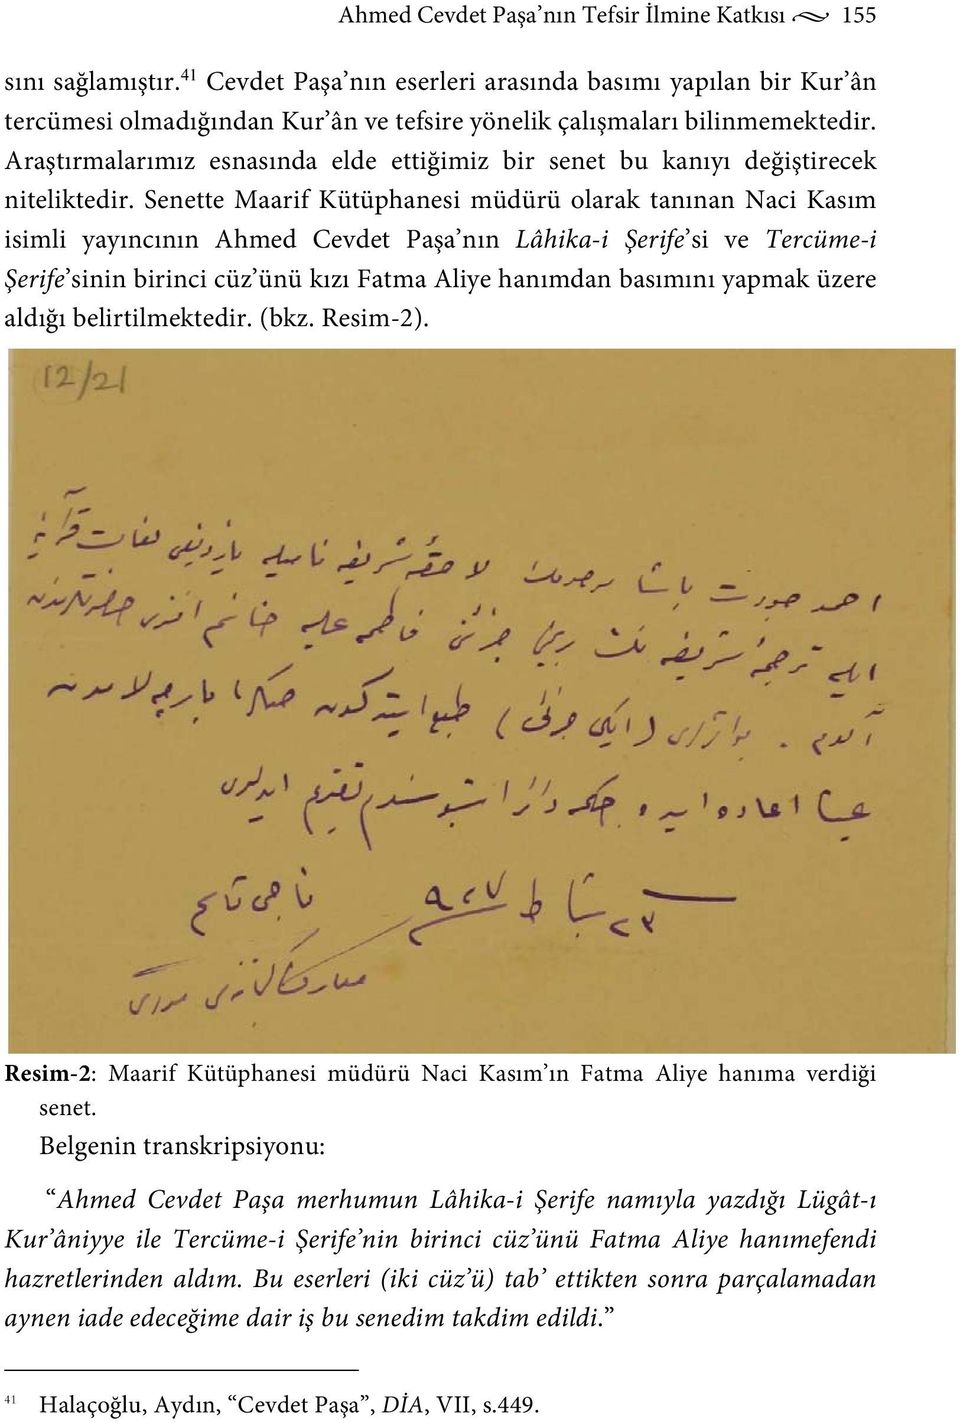 Ahmed Cevdet Paşa’nın Tefsir İlmine Katkısı 155
sını sağlamıştır.41 Cevdet Paşa’nın eserleri arasında basımı yapılan bir Kur’ân
tercümesi olmadığından Kur’ân ve tefsire yönelik çalışmaları bilinmemektedir.
Araştırmalarımız esnasında elde ettiğimiz bir senet bu kanıyı değiştirecek
niteliktedir. Senette Maarif Kütüphanesi müdürü olarak tanınan Naci Kasım
isimli yayıncının Ahmed Cevdet Paşa’nın Lâhika-i Şerife’si ve Tercüme-i
Şerife’sinin birinci cüz’ünü kızı Fatma Aliye hanımdan basımını yapmak üzere
aldığı belirtilmektedir. (bkz. Resim-2).
12/21
احمد جودت پاشا مرحومك لاحقهٔ شریفه نامیله یازدیغی لغات قرآنیه
ایله ترجمهٔ شریفه نك برنجی جزئنی فاطمه علیه خانم افندی حضرتلرندن
آلدم . بو اثرلری (ایکی جزئی) طبع ایتدکدن صکره پارچه لامدن
عینا اعاده ایده جکمه دائر اشبو سندم تقدیم ایدلدی
٢٣ شباط ٩٢٧
ناجی قاسم
معارف کتابخانه سی مدیری
Resim-2: Maarif Kütüphanesi müdürü Naci Kasım’ın Fatma Aliye hanıma verdiği
senet.
Belgenin transkripsiyonu:
“Ahmed Cevdet Paşa merhumun Lâhika-i Şerife namıyla yazdığı Lügât-ı
Kur’âniyye ile Tercüme-i Şerife’nin birinci cüz’ünü Fatma Aliye hanımefendi
hazretlerinden aldım. Bu eserleri (iki cüz’ü) tab’ ettikten sonra parçalamadan
aynen iade edeceğime dair iş bu senedim takdim edildi.”
41 Halaçoğlu, Aydın, “Cevdet Paşa”, DİA, VII, s.449.